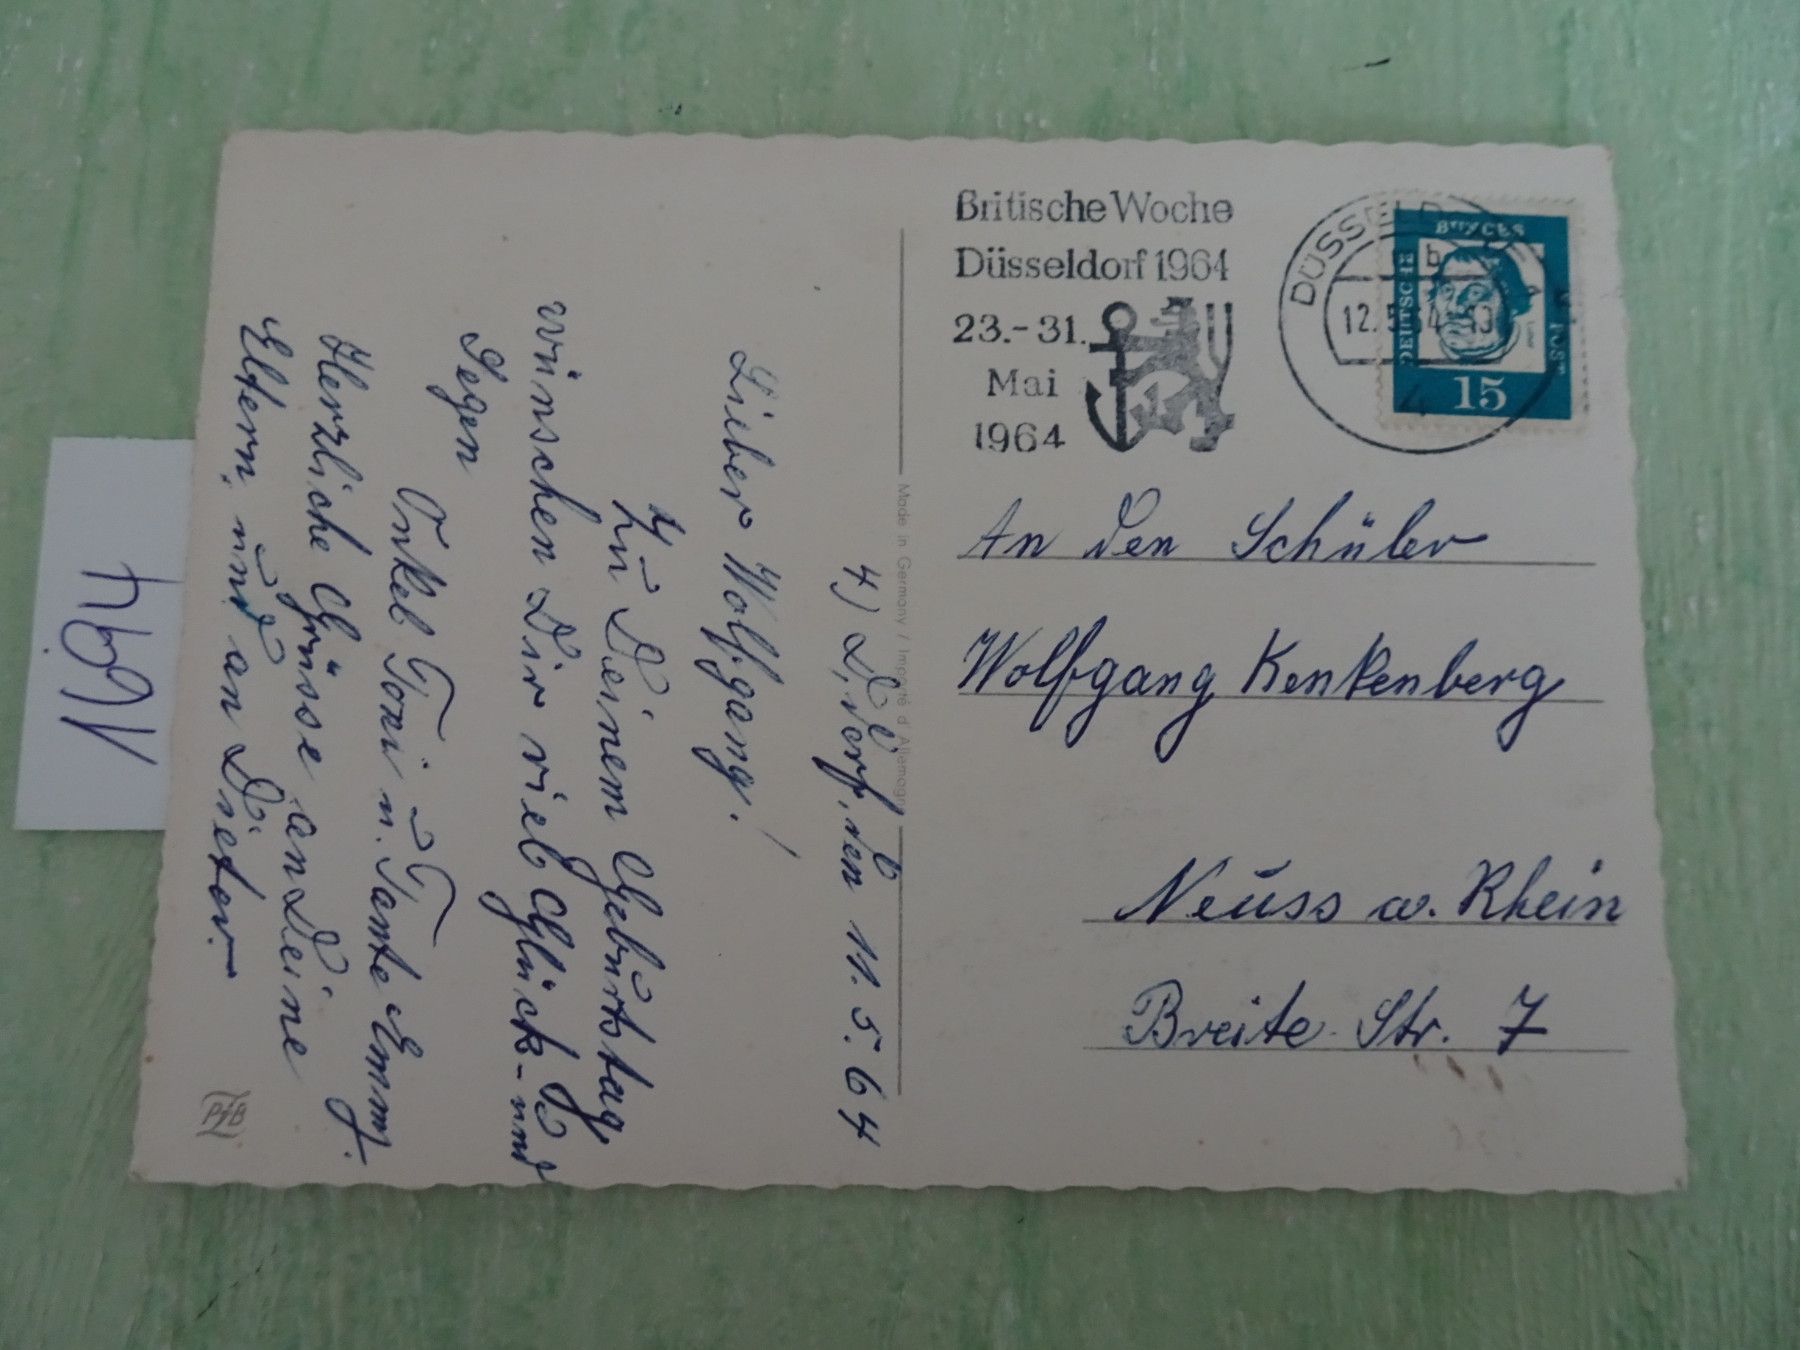 Britische Woche
Düsseldorf 1964
23.-31.
Mai
1964
DÜSSELDORF
b
12.5.64
4
DEUTSCHE
BUNDES
POST
15
An den Schüler
Wolfgang Kenkenberg
Neuss a. Rhein
Breite Str. 7
Made in Germany / Importé d'Allemagne
4) D,dorf, den 11. 5. 64
Lieber Wolfgang!
Zu Deinem Geburtstag
wünschen Dir viel Glück- und
Segen
Onkel Toni u. Tante Emmy.
Herzliche Grüsse an Deine
Eltern und an Dieter.
PfB
1694